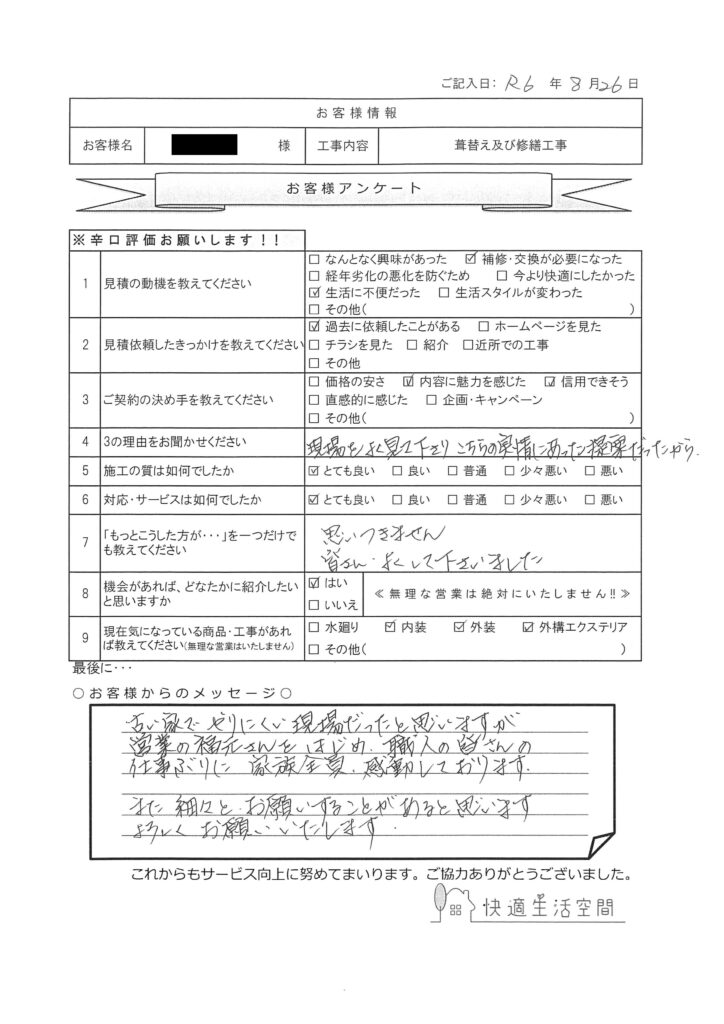 ご記入日: R6 年 8 月 26 日
お客様情報
お客様名 様 工事内容 葺替え及び修繕工事
お客様アンケート
※辛口評価お願いします！！
1 見積の動機を教えてください
□ なんとなく興味があった ☑ 補修・交換が必要になった
□ 経年劣化の悪化を防ぐため □ 今より快適にしたかった
☑ 生活に不便だった □ 生活スタイルが変わった
□ その他( )
2 見積依頼したきっかけを教えてください
☑ 過去に依頼したことがある □ ホームページを見た
□ チラシを見た □ 紹介 □近所での工事
□ その他
3 ご契約の決め手を教えてください
□ 価格の安さ ☑ 内容に魅力を感じた ☑ 信用できそう
□ 直感的に感じた □ 企画・キャンペーン
□ その他( )
4 3の理由をお聞かせください 現場をよく見て下さり こちらの実情にあった提案だったから.
5 施工の質は如何でしたか ☑ とても良い □ 良い □ 普通 □ 少々悪い □ 悪い
6 対応・サービスは如何でしたか ☑ とても良い □ 良い □ 普通 □ 少々悪い □ 悪い
7 「もっとこうした方が・・・」を一つだけで
も教えてください
思いつきません
皆さん.よくして下さいました
8 機会があれば、どなたかに紹介したい
と思いますか
☑ はい
□ いいえ
≪ 無理な営業は絶対にいたしません!! ≫
9 現在気になっている商品・工事があれ
ば教えてください(無理な営業はいたしません)
□ 水廻り ☑ 内装 ☑ 外装 ☑ 外構エクステリア
□ その他( )
最後に・・・
○お客様からのメッセージ○
古い家で やりにくい現場だったと思いますが
営業の福元さんをはじめ.職人の皆さんの
仕事ぶりに 家族全員.感動しております.
また 細々と お願いすることがあると思います
よろしく お願いいたします.
これからもサービス向上に努めてまいります。ご協力ありがとうございました。
快適生活空間